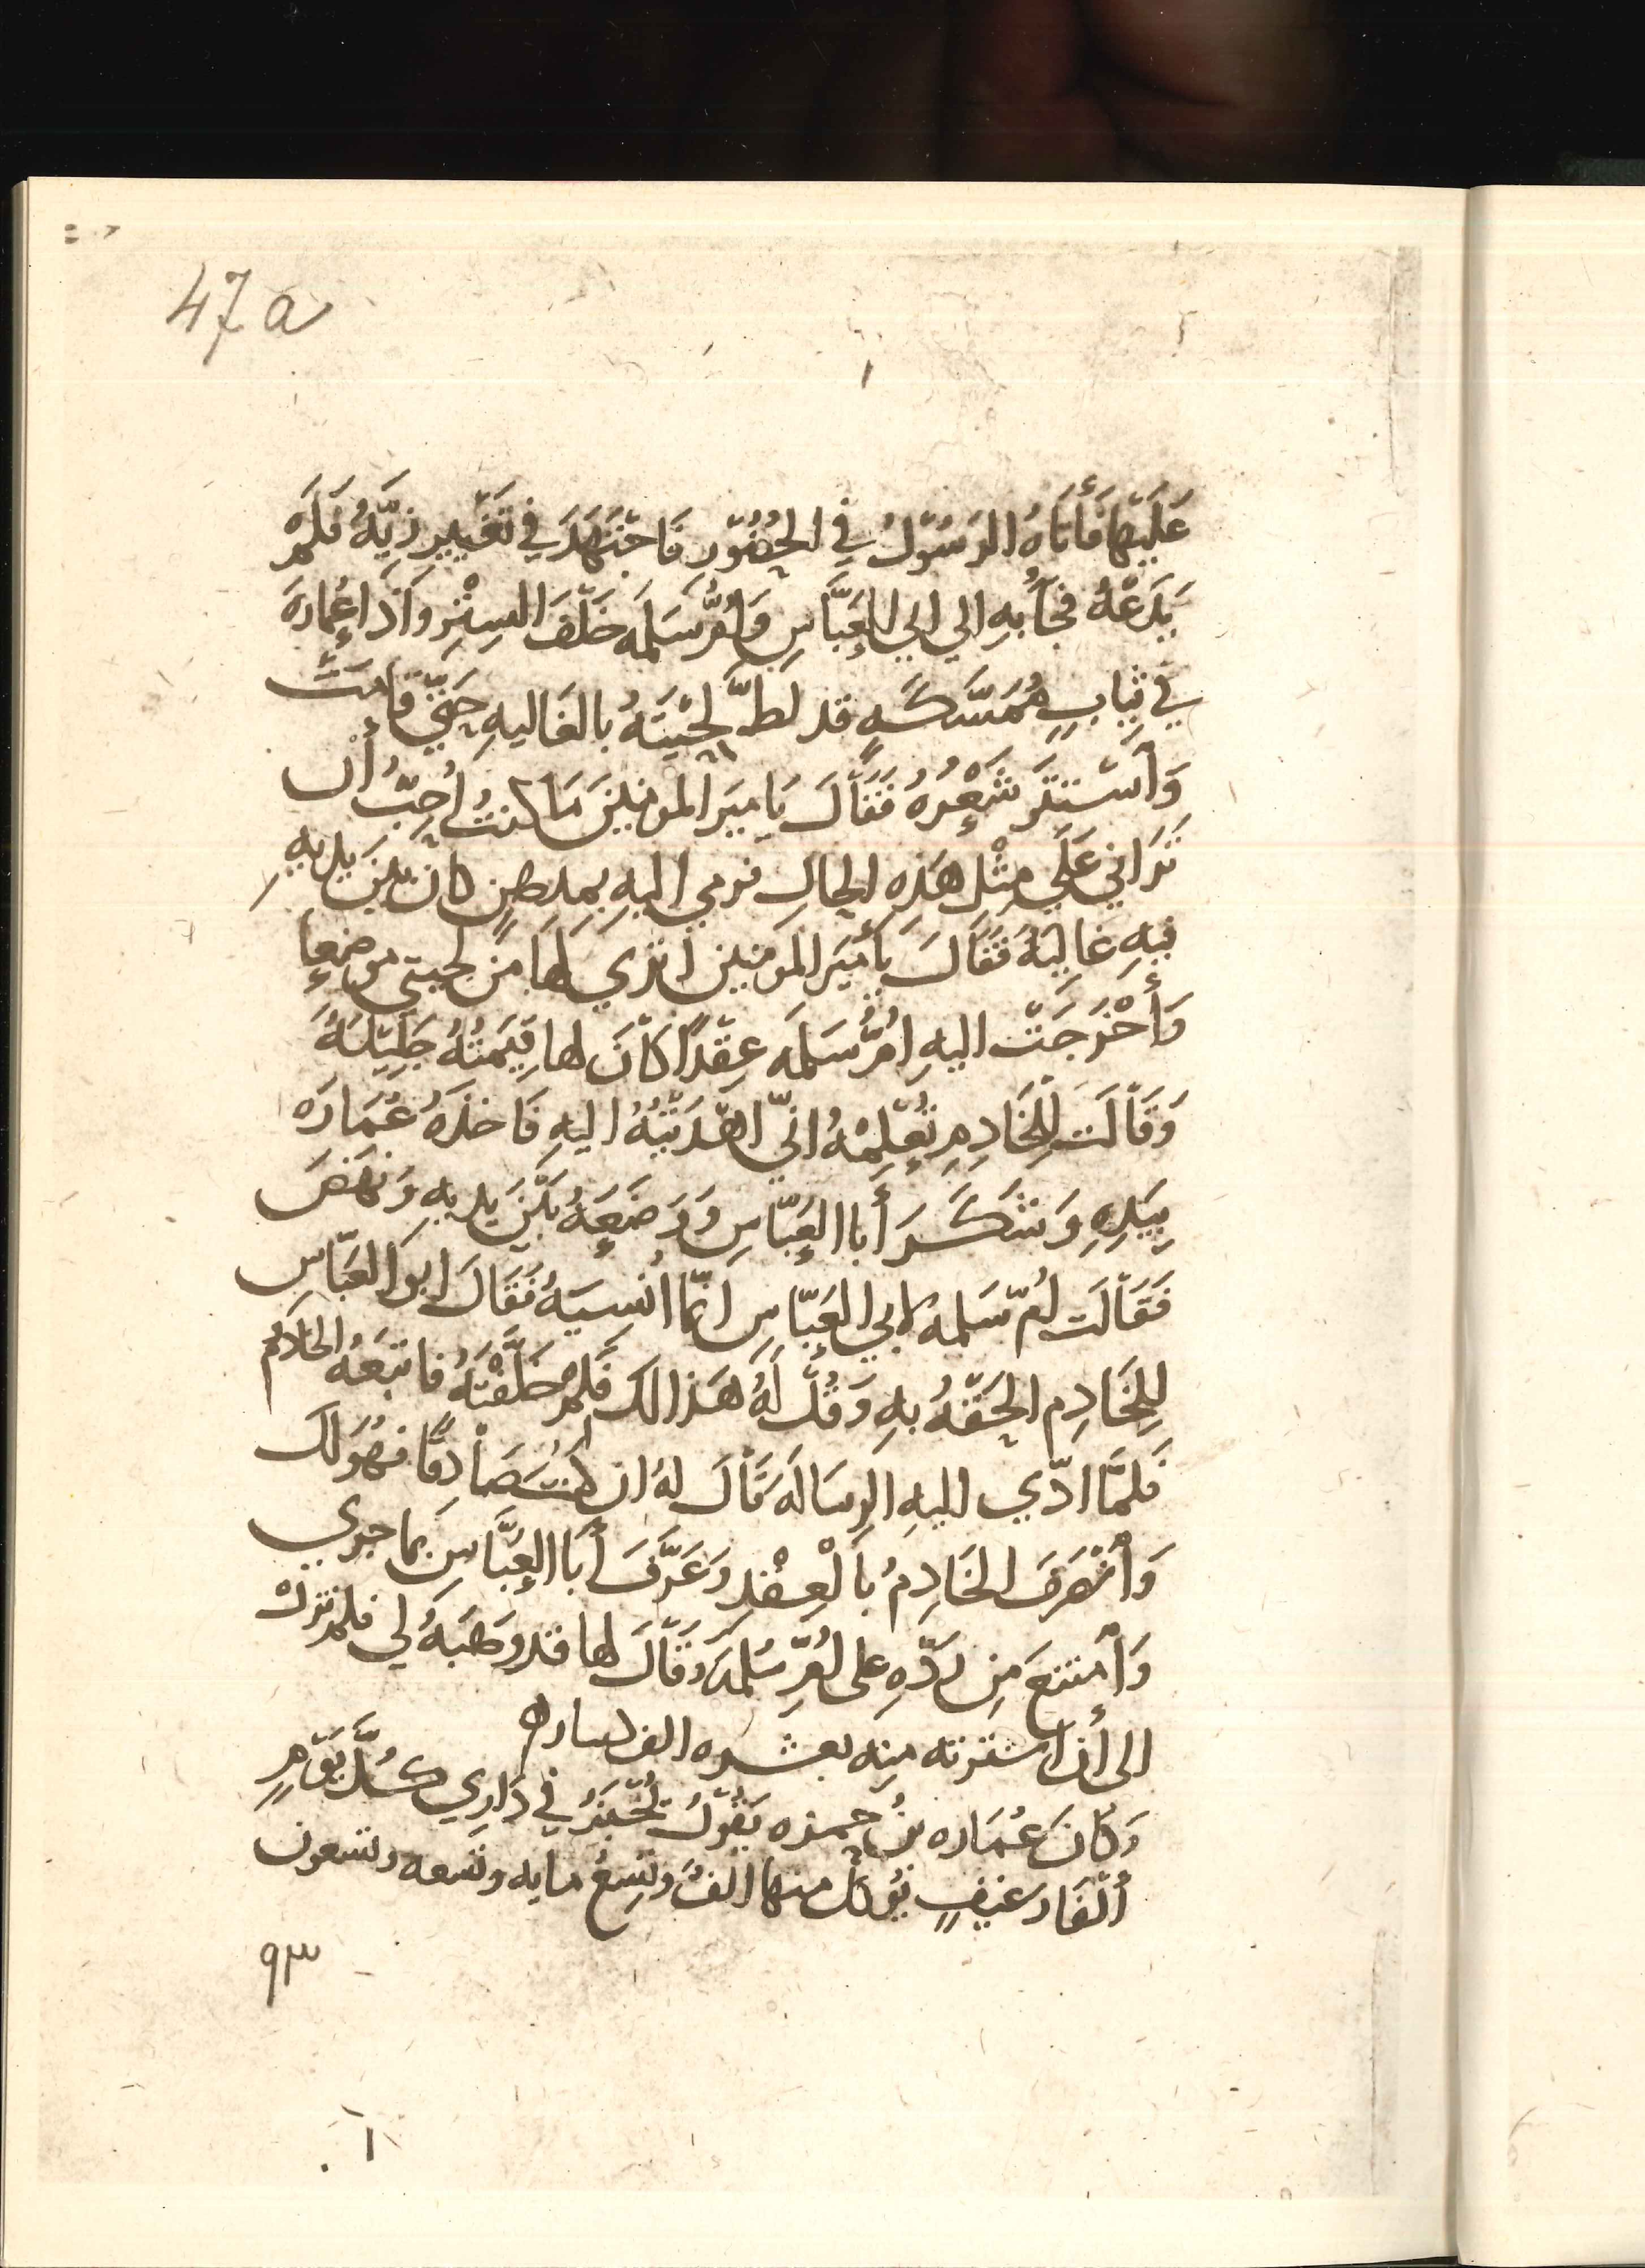 47a
عَلَيْهَا فَأَتَاهُ الرَسُوْلُ في الحُضُوْر فَاجْتَهَدَ في تَغَيير زِيَّهُ فَلَمْ
يَدَعْهُ فجآبهِ الي ابي العَبَّاسِ وَاُمُّ سَلَمَه خَلْفَ السِتْرِ واذَا عُمَارَة
في ثِيابٍ مُمَسَّكَةٍ قد لطَّ لِحْيَتَهُ بالغَاليهِ حَتّي قَامَتْ
وَاَسْتَتَرَ شَعْرُهُ فَقَاْلَ يَامِيَر المومنِيْنَ مَا كنتُ أُحِبّ أن
تَرَاني عَلَي مِثْل هَذِهِ الحَالِ فرمي اليهِ بمدهن كان بَيْنَ يديهِ
فيهِ غَالِيَة فَقَاْلَ يَأَميَر المومنين اتري لهَا مِنْ لحيتي موضِعاً
وَأَخْرَجَتْ اليهِ امُّ سَلمَه عِقْداً كاْنَ لها قِيَمتُهُ جَلِيْلَةُ
وَقَاْلَت لِلْخَادِمِ تُعْلِمْهُ انّي اهْدَيْتُهُ اليهِ فَاخذَهُ عُمَارَه
بِيَدِهِ وَشَكَرَ أَبا العَبّاسِ وَوَضَعَهُ بَيْنَ يديهِ وَنَهَضَ
فَقَاْلَت اُمّ سَلمه لابي العَبّاسِ انّما اُنْسِيَهُ فَقَالَ ابو العَبّاس
لِلخَادِم الحَقْهُ بهِ وَقُلْ لَهُ هَذا لك فَلِمَ خَلَّفْتَهُ فاتبَعَهُ الخَادِم
فَلمَّا ادّي اليهِ الرِسَالَه قَاْلَ لهُ ان كنتَ صَاْدِقًا فهُوَ لك
وَأْنصَرفَ الخَادِمُ بَالْعِقْدِ وَعَرَّفَ أَبَا العَبَّاسِ بمَا جري
وَأمتنعَ مِن رَدّهِ على اُمِّ سَلمَهَ وَقَاْلَ لها قد وهَبَهُ لي فلم تزلْ
الى أن اشترته مِنه بعشره الف دينار ه
وَكانَ عُمَاره بنُ حمزه يَقُوْلُ يُخْبَزُ في دَارِي كُلَّ يَوْمٍ
أْلفَا رغيفٍ يُوكل منها الفُ وتِسعُ مايه وتسعه وتسعون
٩٣